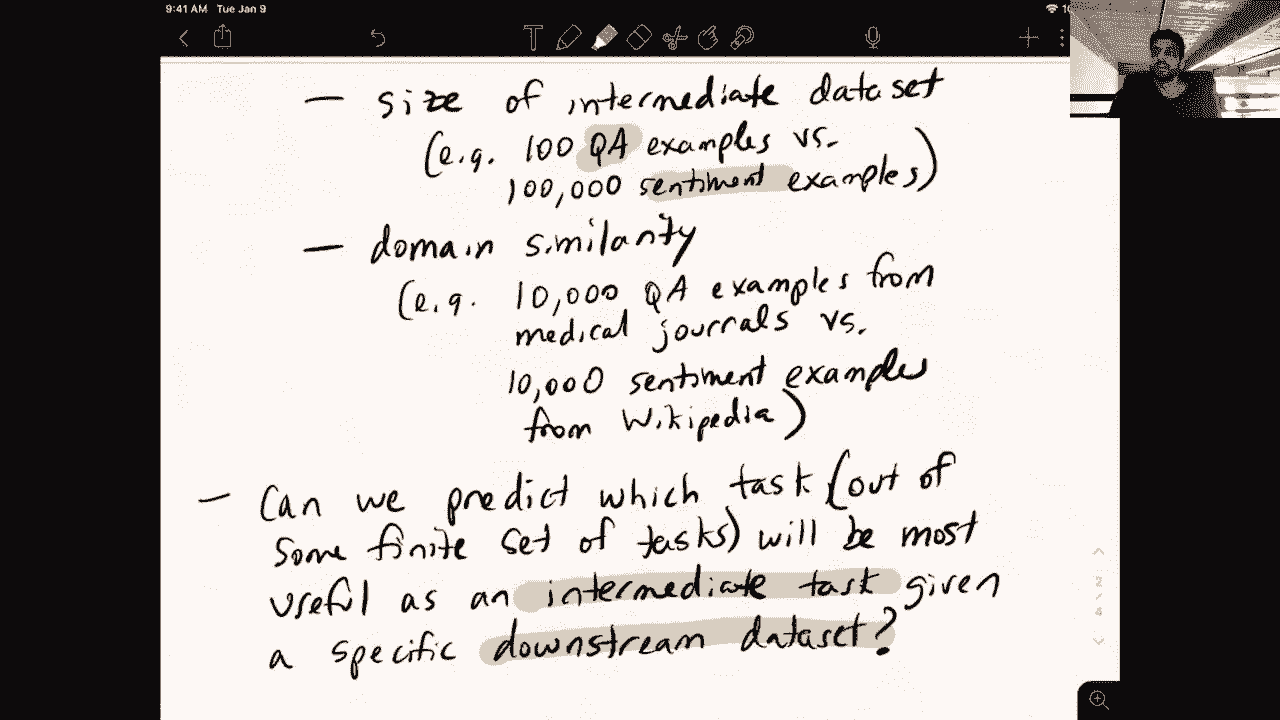 9:41 AM Tue Jan 9
— size of intermediate dataset
(e.g. 100 QA examples vs.
100,000 sentiment examples)
— domain similarity
(e.g. 10,000 QA examples from
medical journals vs.
10,000 sentiment examples
from Wikipedia)
— Can we predict which task (out of
some finite set of tasks) will be most
useful as an intermediate task given
a specific downstream dataset?
2
/
4